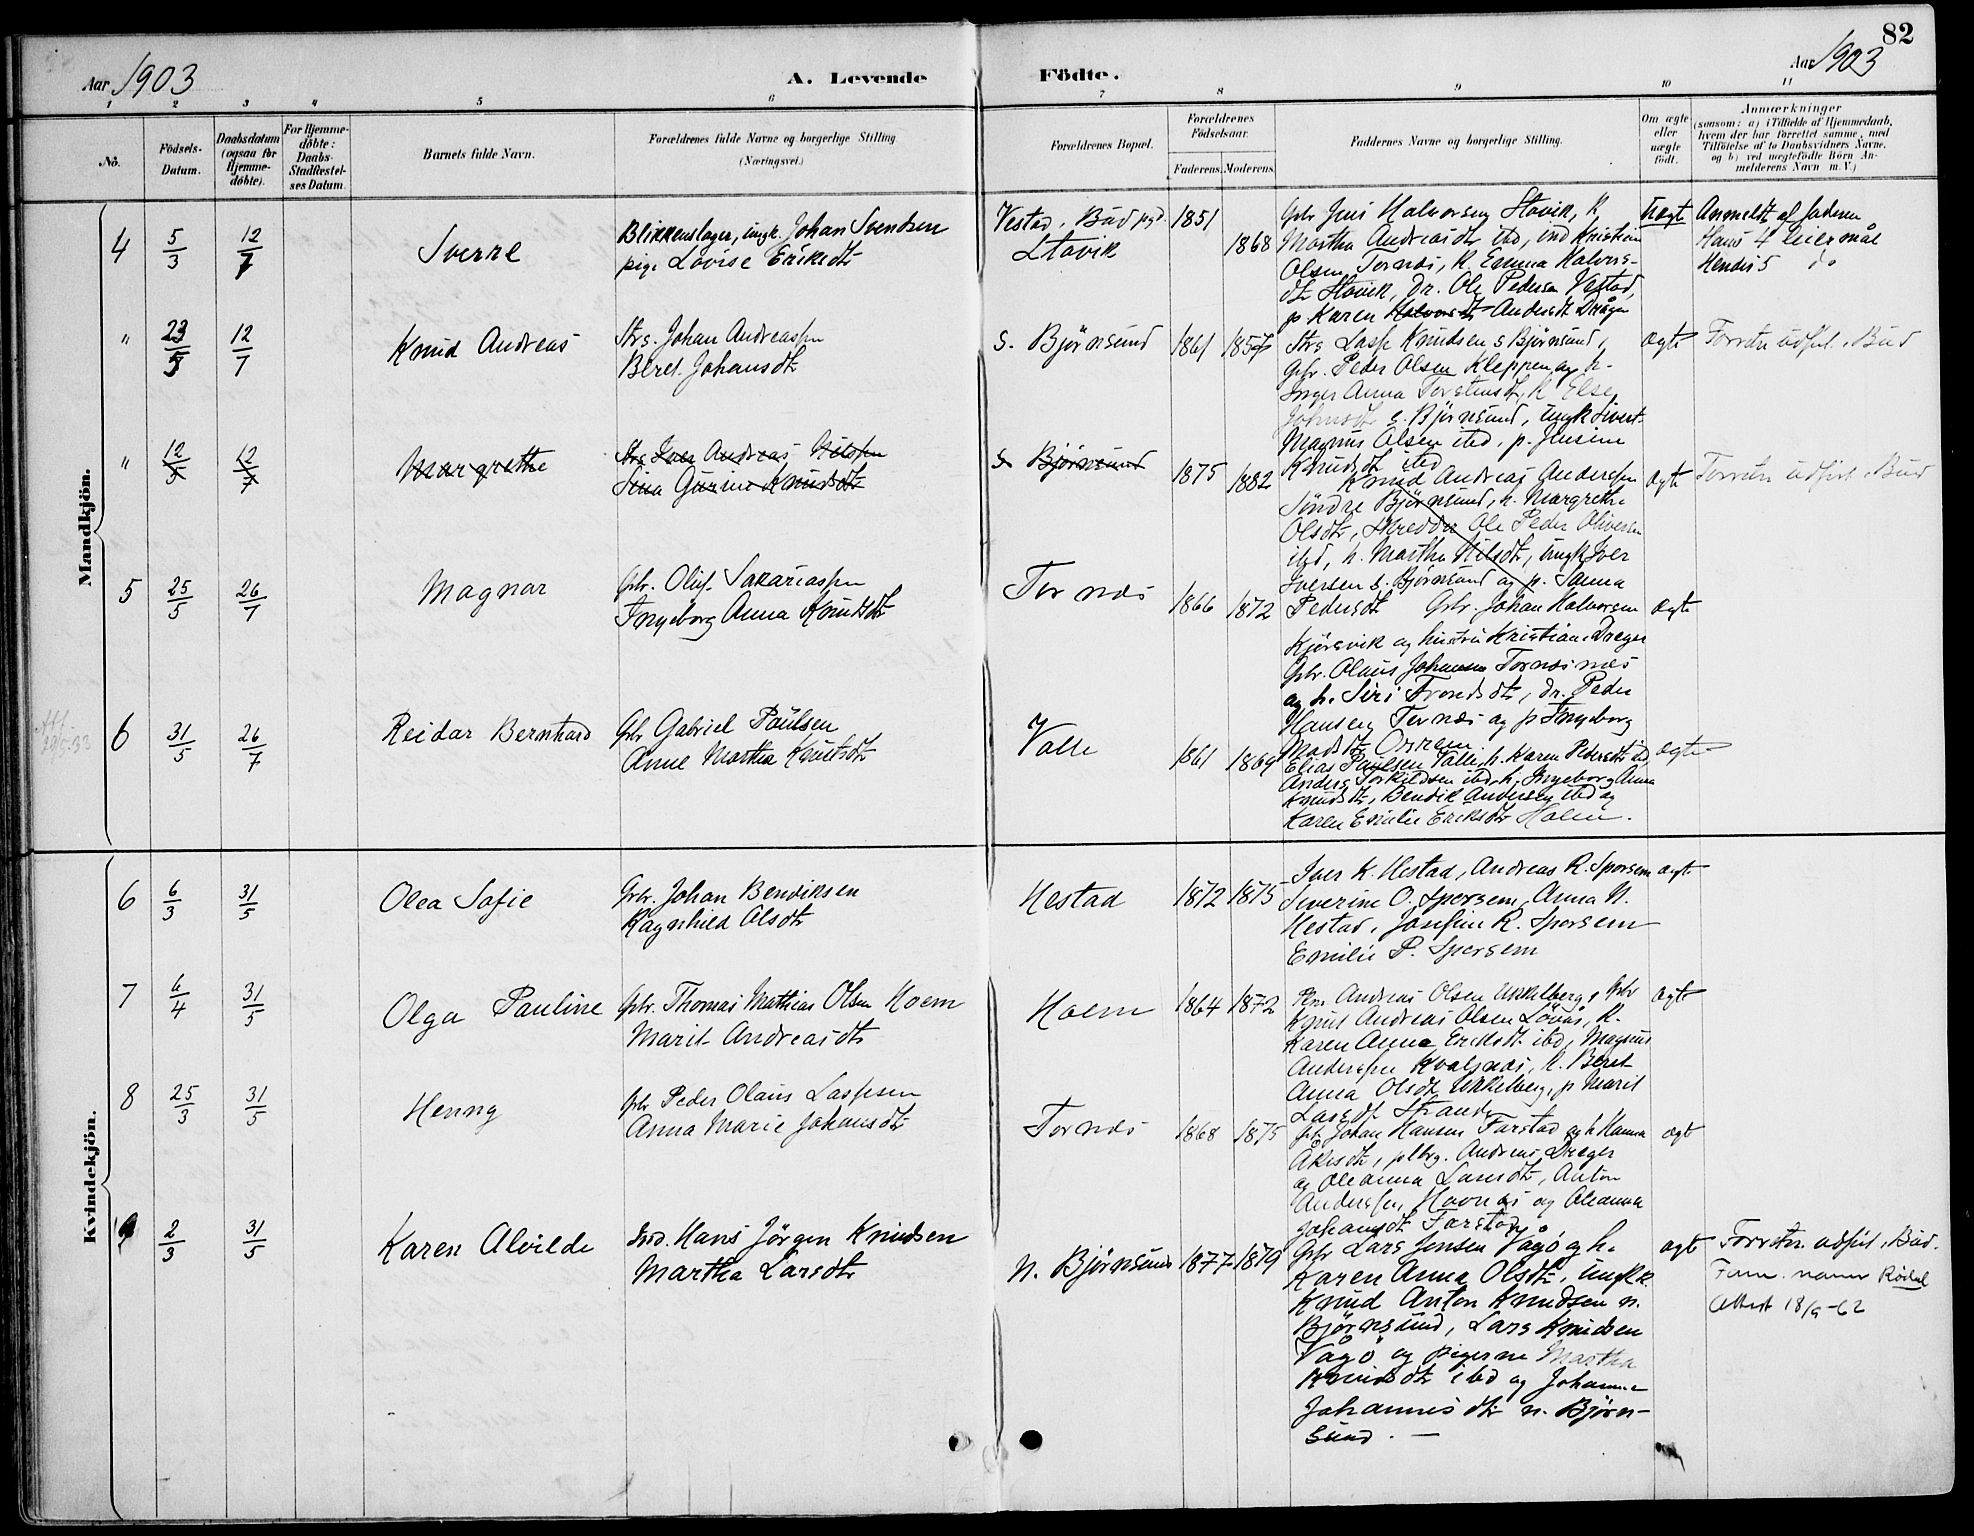 82
Aar 1903
A. Levende Födte.
Aar 1903
1 2 3 4 5 6 7 8 9 10 11
No.
Födsels-Datum.
Daabsdatum (ogsaa for Hjemme-döbte).
For Hjemme-döbte: Daabs-Stadfæstel-ses Datum
Barnets fulde Navn.
Forældrenes fulde Navne og borgerlige Stilling (Næringsvei.)
Forældrenes Bopæl.
Forældrenes Födselsaar.
Faderens. Moderens.
Faddernes Navne og borgerlige Stilling.
Om ægte eller uægte födt.
Anmærkninger
(saasom: a) i Tilfælde af Hjemmedaab,
hvem der har forrettet samme, med
Tilföielse af to Daabsvidners Navne,
og b) ved uægtefödte Börn An-
melderens Navn m. V.)
Mandkjön.
4 5/3 12/7 Sverre
Blikkenslager, ungk. Johan Svendsen
pige Lovise Eriksdtr
Vestad, Bud pgd.
Stavik
1851 1868
Gbr Jens Halvorsen Stavik, k
Martha Andreasdtr ibd, ind Kristian
Olsen Tornæs, k. Emma Halvors-
dtr Stavik, Dr. Ole Pedersen Vestad,
p Karen Halvorsdt Andersdt Drågen
uægt
Anmeldt af faderen
Hans 4 leiermål
Hendes 5 do
" 23/5 12/7 Knud Andreas
Strs. Johan Andreassen
Beret Johansdtr
S. Björnsund 1861 1857
Strs Lasse Knudsen s Björnsund,
Gbr. Peder Olsen Kleppen og h.
Inger Anna Torstensdt, k Else
Johnsdt s. Björnsund, ungk Sivert
Magnus Olsen ibd, p. Jensine
Knudsdt ibd
ægte Forretn udført i Bud
" 12/5 12/7 Margrethe
Strs Iver Andreas Nilssen
Sina Gurine Knudsdtr
S Björnsund
1875 1882
Knud Andreas Anderssen
Söndre Björnsund, h. Margrethe
Olsdtr, Skredder Ole Peder Oliversen
ibd, h. Martha Nilsdtr, ungk Iver
Iversen s. Björnsund og p. Sanna
Pedersdt
ægte Forretn udført i Bud
5 25/5 26/7 Magnar
Gbr. Oluf Sakariassen
Ingeborg Anna Knudsdtr
Tornæs
1866 1872
Gbr. Johan Halvorsen
Kjörsvik og hustru Kristiane Dræger
Gbr. Olaus Johansen Tornæs
og h. Siri Trondsdtr, Dr. Peder
Hansen Tornæs og p Ingeborg
Madsdtr
ægte
6 31/5 26/7 Reidar Bernhard
Gbr Gabriel Paulsen
Anne Martha Knudsdtr
Valle
1861 1869
Elias Paulsen Valle, h. Karen Pedersdtr ibd,
Anders Torkildsen ibd, h. Ingeborg Anna
Knudsdtr, Bendik Andersen ibd og
Karen Emilie Eriksdtr Holen.
ægte
Kvindekjön.
6 6/3 31/5 Olea Sofie
Gbr. Johan Bendiksen
Ragnhild Olsdtr
Hestad 1872 1875
Iver K. Hestad, Andreas R. Sporsem
Severine O. Sporsem, Anna N.
Hestad, Josefine R. Sporsem
Emilie P. Sporsem
ægte
7 6/4 31/5 Olga Pauline
Gbr. Thomas Mathias Olsen Hoem
Marit Andreasdtr
Hoem 1864 1872
Andreas Olsen Ukkelberg, Gbr
Knut Andreas Olsen Lövås, k.
Karen Anna Eriksdt ibd, Magnus
Anderssen Kvalsnæs, k. Beret
Anna Olsdt Ukkelberg, p Marit
Larsdt Strande
ægte
8 25/3 31/5 Henny
Gbr Peder Olaus Lassesen
Anna Marie Johansdtr
Tornæs 1868 1875
Gbr Johan Hansen Farstad og h Hanna
Åkesdtr, plbrg. Andreas Dræger
og Oleanna Larsdtr, Anton
Anderssen, Havnæs og Oleanna
Johansdtr Farstad
ægt
9 2/3 31/5 Karen Alvilde
Ind. Hans Jörgen Knudsen
Martha Larsdtr
N. Björnsund 1877 1879
Gbr Lars Jensen Vågö og h.
Karen Anna Olsdtr, ungk
Knud Anton Knudsen n.
Björnsund, Lars Knudsen
Vågö og pigerne Martha
Knudsdtr ibd og Johanne
Johannesdtr n. Björn-
sund. —
ægt
Forretn. udført i Bud.
Fam. navn Rödal
Attest 18/9-62